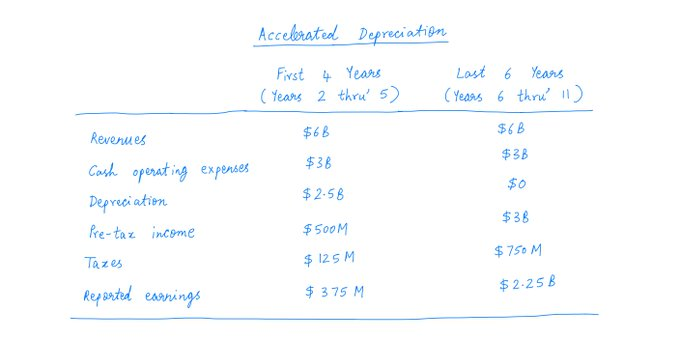 Accelerated Depreciation
First 4 Years Last 6 Years
(Years 2 thru' 5) (Years 6 thru' 11)
Revenues $6B $6B
Cash operating expenses $3B $3B
Depreciation $2.5B $0
Pre-tax income $500M $3B
Taxes $125M $750M
Reported earnings $375M $2.25B